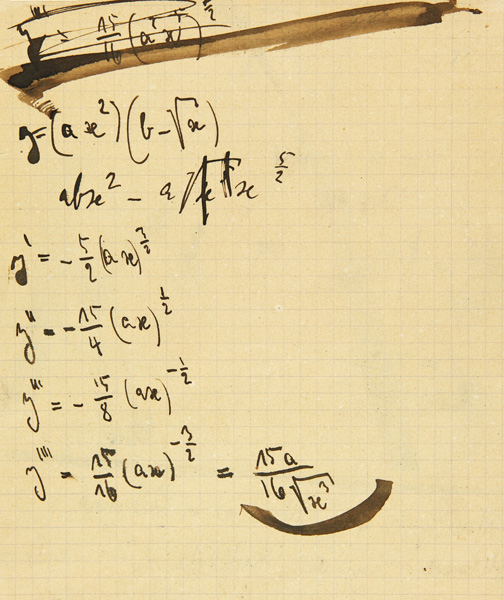 y'''' = 15/16 (a x)^5/2
y = (ax²)(b - √x)
abx² - a x^5/2
y' = - 5/2 (ax)^3/2
y'' = - 15/4 (ax)^1/2
y''' = - 15/8 (ax)^-1/2
y'''' = 15/16 (ax)^-3/2 = 15a / 16√x³